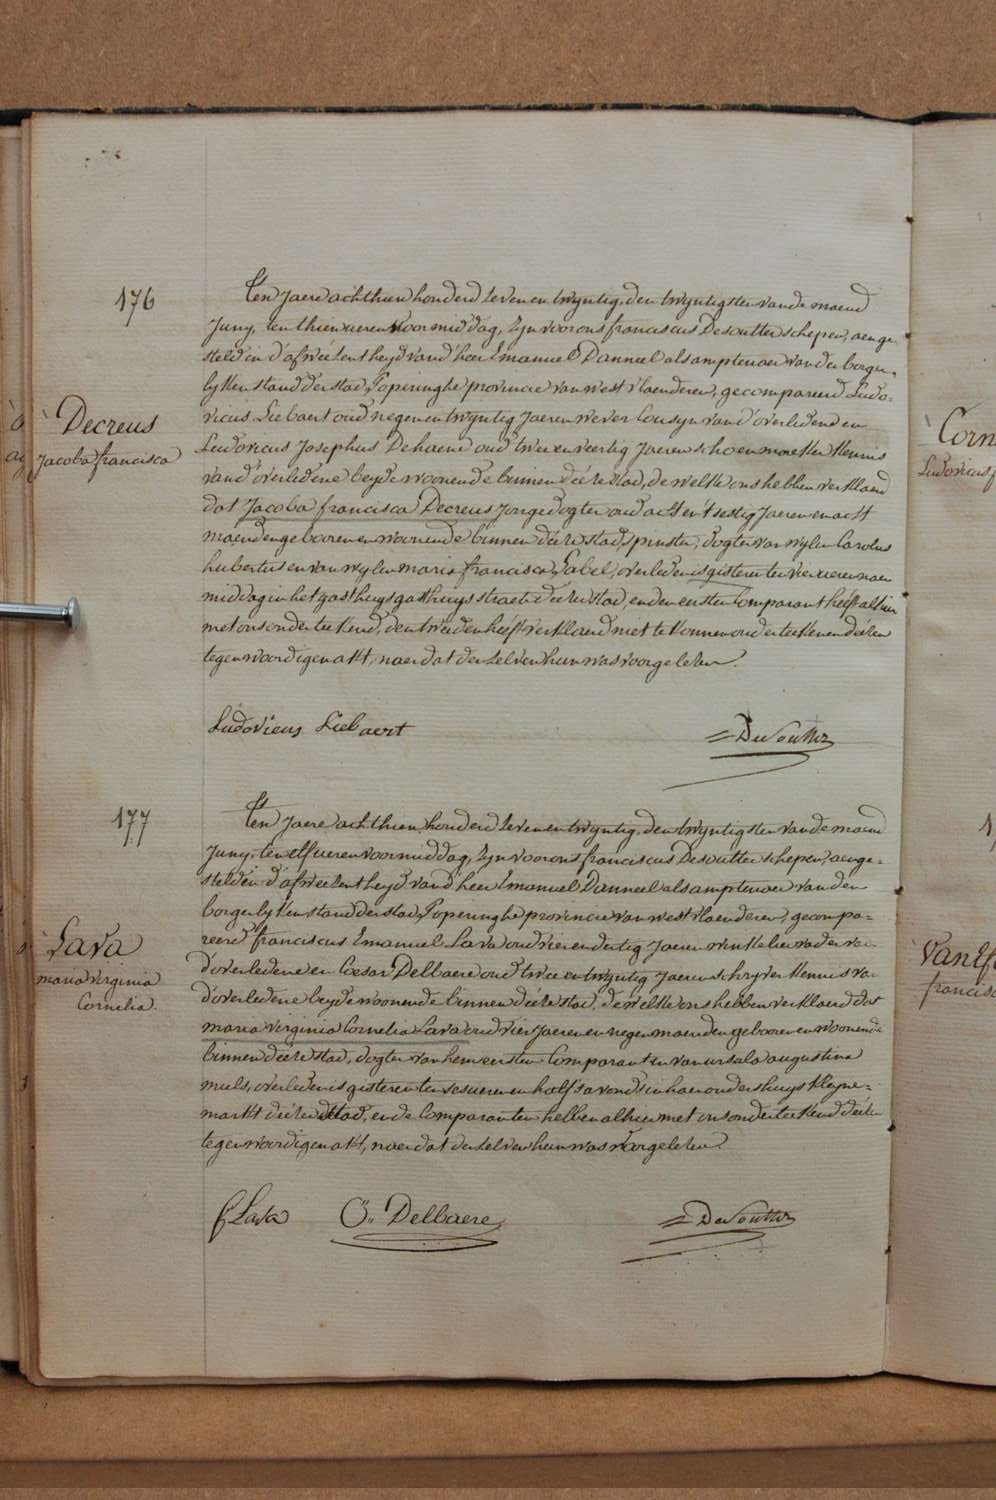 176
Decreus
Jacoba francisca
Ten Jaere achthien honderd Zeven en twyntig, den twyntigsten van de maend
Juny, ten thien ueren Voormiddag, Zyn voor ons franciscus Desoutter schepen, aenge-
steld in d'afweézentheyd van d'heer Emanuel Danneel als amptenaer van den borger-
lyken stand der stad Poperinghe provincie van west vlaenderen, gecompareerd Ludo-
vicus Liebaert oud negen en twyntig Jaeren wever Cousyn van d'overledene en
Ludovicus Josephus Dehaene oud twee en veertig Jaeren schoenmaeker Kennis
van d'overledene beyde woonende binnen déeze stad, de welke ons hebben verklaerd
dat Jacoba francisca Decreus Jonge dogter oud acht en t'sestig Jaeren en acht
maenden gebooren en woonende binnen déeze stad, spinster, dogter van wylen Carolus
hubertus en van wylen maria francisca Label, overleden is gisteren ten vier ueren naer
middag in het gasthuys gasthuys straete déezer stad, en den eersten Comparant heéft alhier
met ons onderteekend, den tweeden heéft verklaerd niet te konnen onderteekenen déezen
tegenwoordigen akt, naer dat der zelven hun was voorgelezen.
Ludovicus Liebaert
Desoutter
177
Lava
maria virginia
Cornelia.
Ten Jaere achthien honderd Zeven en twyntig, den twyntigsten van de maend
Juny, ten elf ueren voormiddag, Zyn voor ons franciscus Desoutter schepen, aenge-
steld in d'afweézentheyd van d'heer Emanuel Danneel als amptenaer van den
borgerlyken stand der stad Poperinghe provincie van west vlaenderen, gecompa-
reerd franciscus Emanuel Lava oud vier en dertig Jaeren winkelier vader van
d'overledene en Cesar Delbaere oud twee en twyntig Jaeren schryver Kennis van
d'overledene beyde woonende binnen déeze stad, de welke ons hebben verklaerd dat
maria virginia Cornelia Lava oud vier Jaeren en negen maenden gebooren en woonende
binnen déeze stad, dogter van hem eersten Comparant en van ursula augustina
muls, overleden is gisteren ten ses ueren en half s'avonds in haer ouders huys kleyne-
markt déezer stad, en de Comparanten hebben alhier met ons onderteekend déezen
tegenwoordigen akt, naer dat der zelven hun was voorgelezen.
f Lava
C. Delbaere
Desoutter
Corn
Ludovicus
Vanelf
francisc